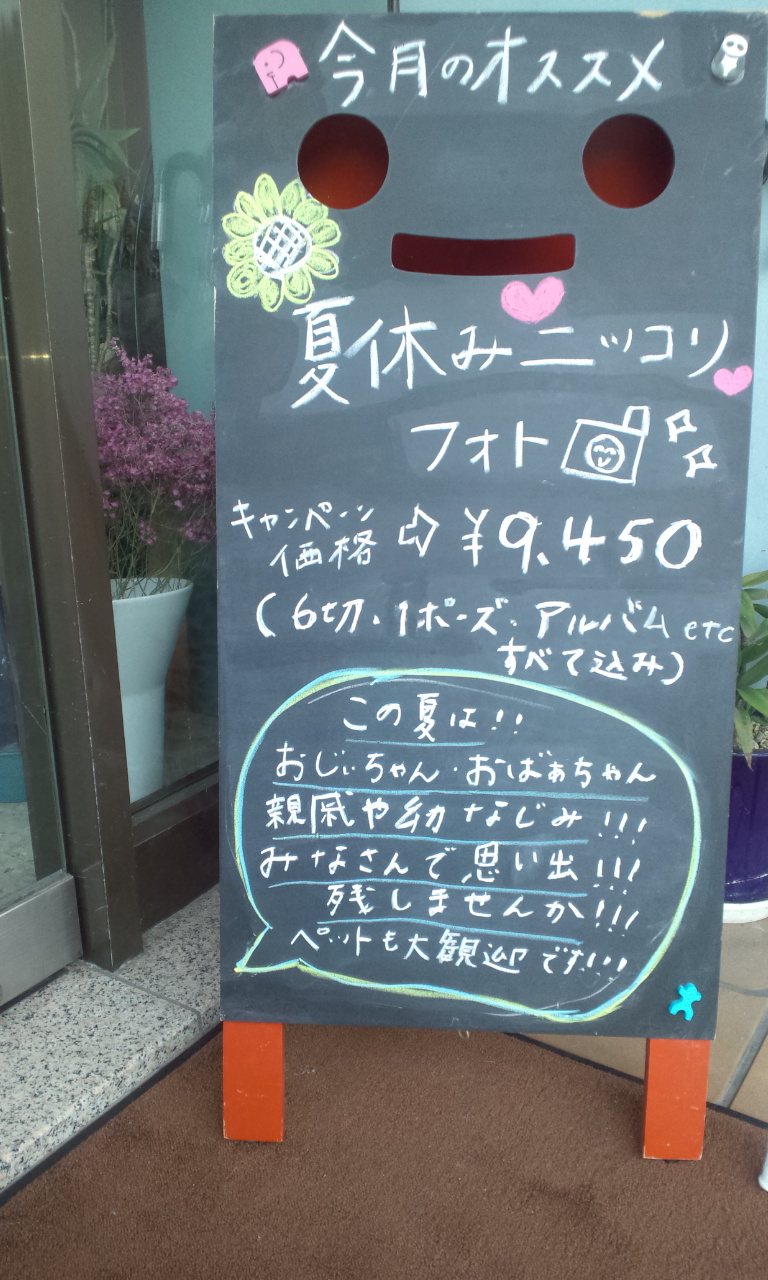 今月のオススメ
夏休みニッコリ
フォト
キャンペーン
価格 ⇨ ¥9.450
(6切.1ポーズ.アルバムetc
すべて込み)
この夏は!!
おじぃちゃん・おばぁちゃん
親戚や幼なじみ!!!
みなさんで思い出!!!
残しませんか!!!
ペットも大観迎です!!!